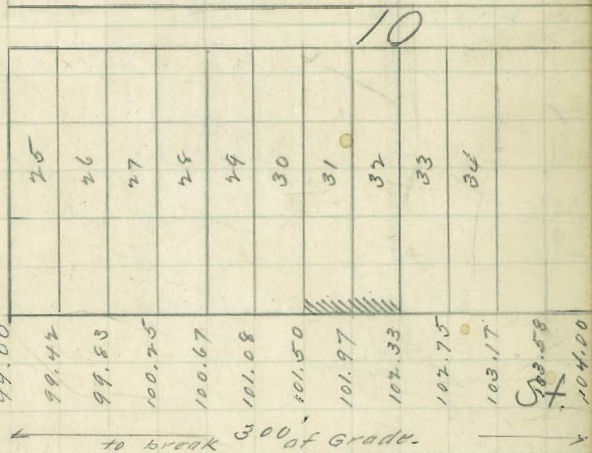 10
25
26
27
28
29
30
31
32
33
34
99.00
99.42
99.83
100.25
100.67
101.08
101.50
101.97
102.33
102.75
103.17
103.58
104.00
St
to break 300' of Grade.